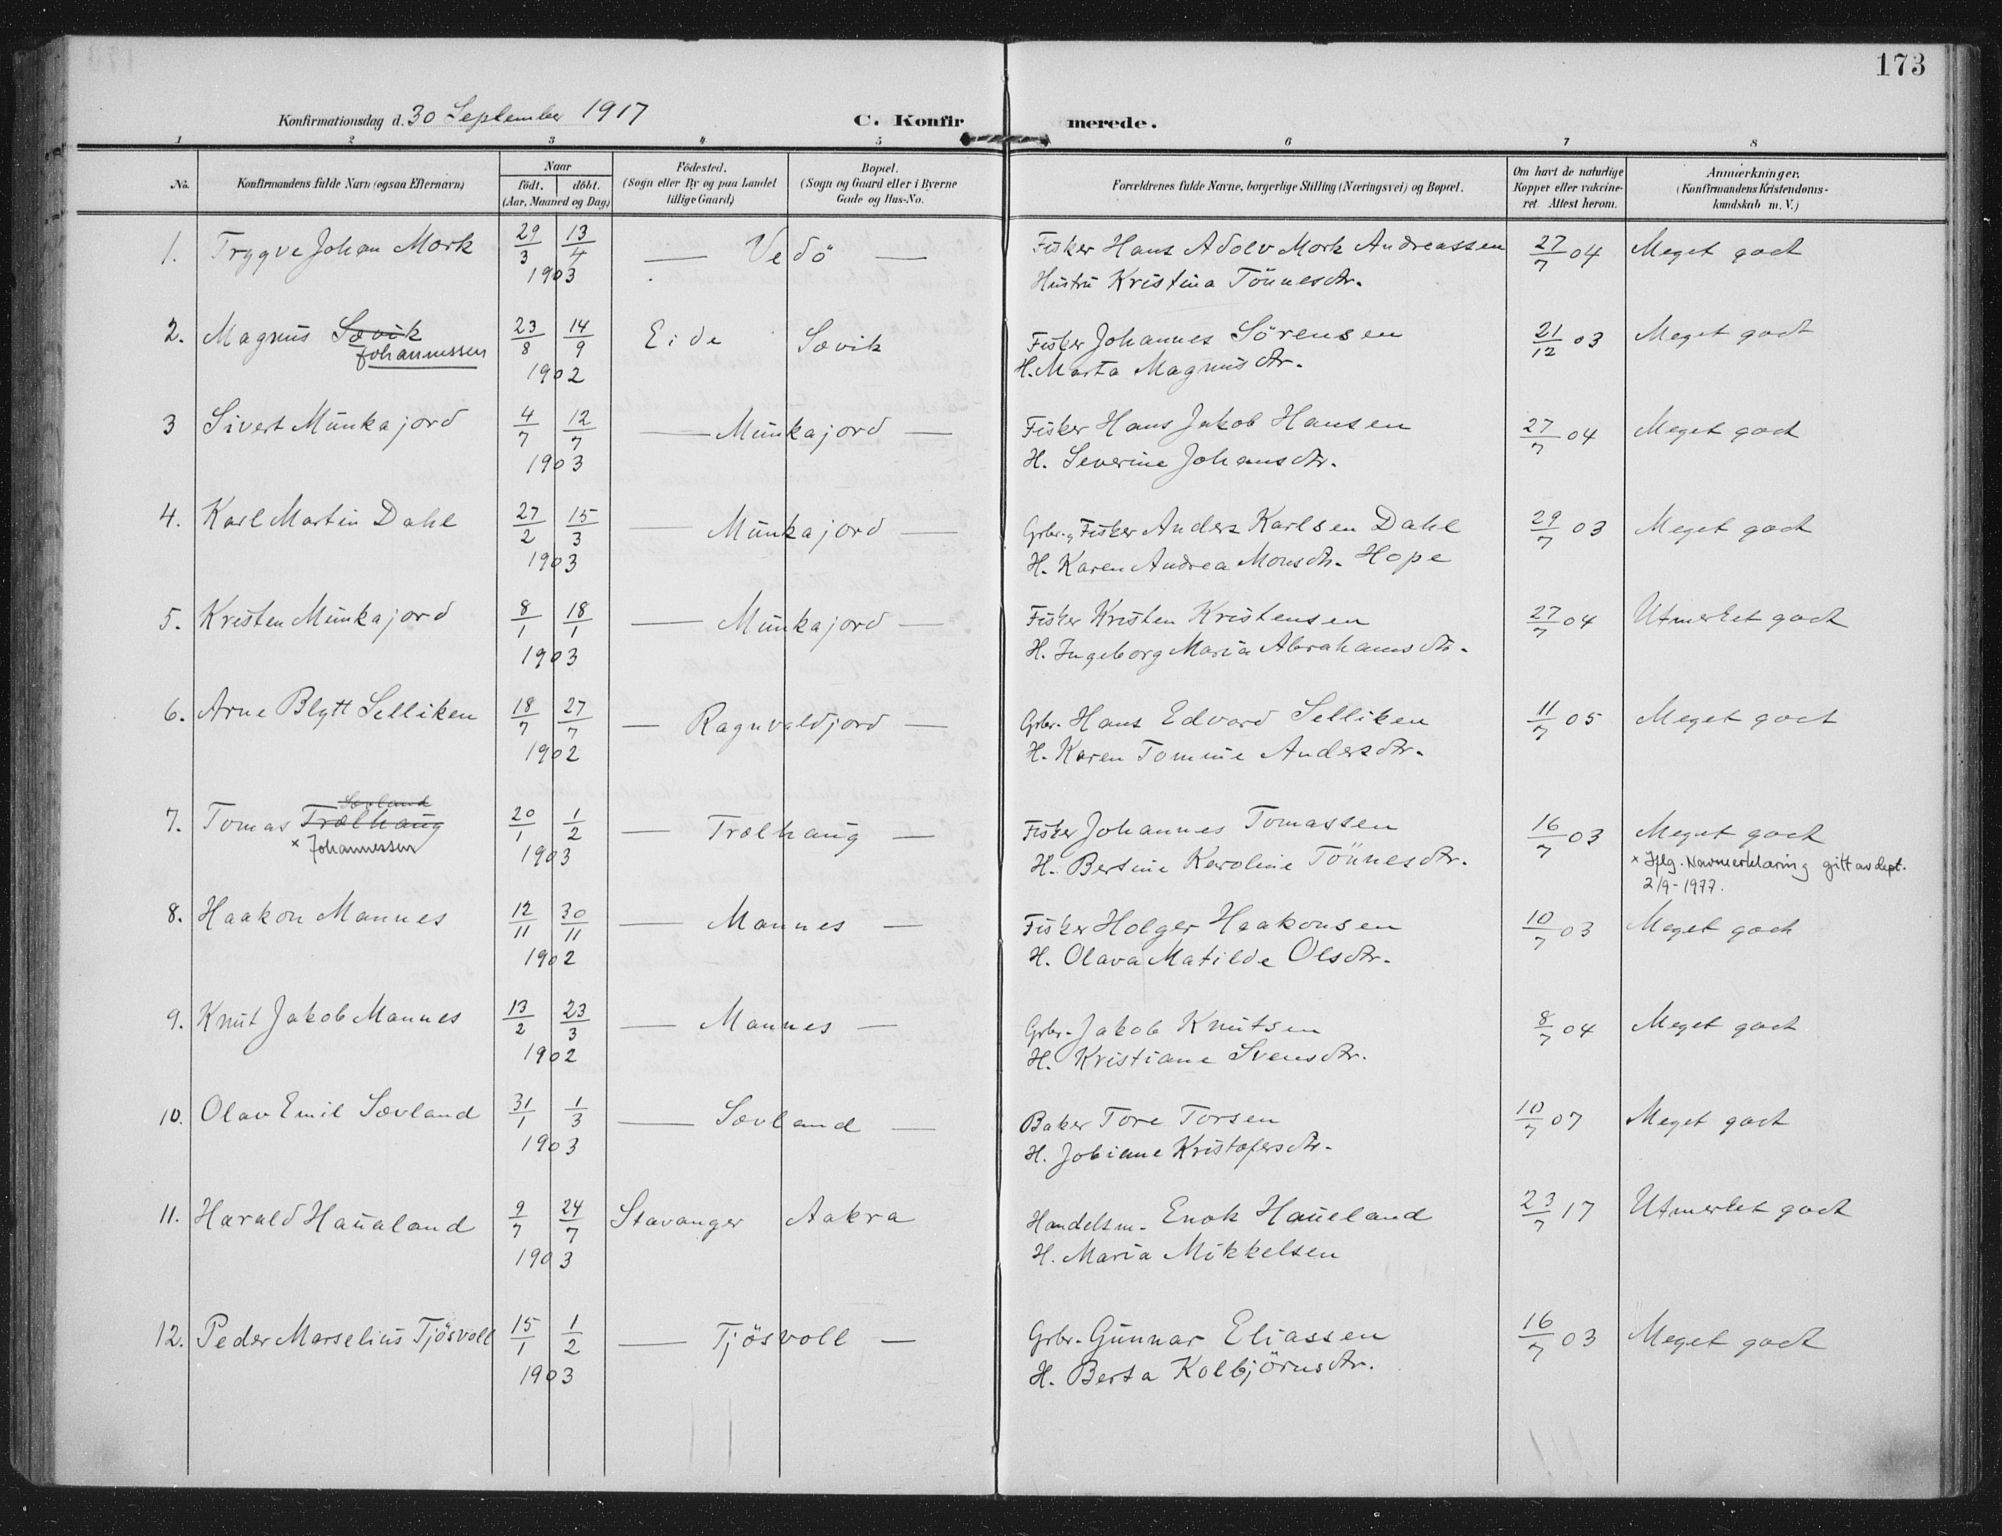 173
Konfirmationsdag d. 30 September 1917
C. Konfirmerede.
1 2 3 4 5 6 7 8
No. Konfirmandens fulde Navn (ogsaa Efternavn) Naar født. døbt. (Aar, Maaned og Dag) Fødested. (Sogn eller By og paa Landet tillige Gaard) Bopæl. (Sogn og Gaard eller i Byerne Gade og Hus-No. Forældrenes fulde Navne, borgerlige Stilling (Næringsvei) og Bopæl. Om havt de naturlige Kopper eller vakcineret. Attest herom. Anmærkninger. (Konfirmandens Kristendomskundskab m. V.)
1. Trygve Johan Mork 29/3 13/4 — Vedö — Fisker Hans Adolv Mork Andreassen 27/7 04 Meget godt
1903 Hustru Kristina Tönnesdtr.
2. Magnus Sævik 23/8 14/9 Eide Sævik Fisker Johannes Sörensen 21/12 03 Meget godt
Johannessen 1902 H. Marta Magnusdtr.
3 Sivert Munkajord 4/7 12/7 — Munkajord — Fisker Hans Jakob Hansen 27/7 04 Meget godt
1903 H. Severine Johansdtr.
4. Karl Martin Dahl 27/2 15/3 — Munkajord — Grbr. g Fisker Anders Karlsen Dahl 29/7 03 Meget godt
1903 H. Karen Andrea Monsdtr. Hope
5. Kristen Munkajord 8/1 18/1 — Munkajord — Fisker Kristen Kristensen 27/7 04 Utmerket godt
1903 H. Ingeborg Maria Abrahamsdtr.
6. Arne Blytt Selliken 18/7 27/7 — Ragnvaldjord — Grbr. Hans Edvard Selliken 11/7 05 Meget godt
1902 H. Karen Tomine Andersdtr.
Sævland
7. Tomas Trælhaug 20/1 1/2 — Trælhaug — Fisker Johannes Tomassen 16/7 03 Meget godt
x Johannessen 1903 H. Bertine Karoline Tönnesdtr. x Iflg. Navneerklæring gitt av dept.
2/9-1977.
8. Haakon Mannes 12/11 30/11 — Mannes — Fisker Holger Haakonsen 10/7 03 Meget godt
1902 H. Olava Matilde Olsdtr.
9. Knut Jakob Mannes 13/2 23/3 — Mannes — Grbr. Jakob Knutsen 8/7 04 Meget godt
1902 H. Kristiane Svensdtr.
10. Olav Emil Sævland 31/1 1/3 — Sævland — Baker Tore Torsen 10/7 07 Meget godt
1903 H. Jobiane Kristofersdtr.
11. Harald Haualand 9/7 24/7 Stavanger Aakra Handelsm. Enok Haueland 23/7 17 Utmerket godt
1903 H. Maria Mikkelsen
12. Peder Marselius Tjösvoll 15/1 1/2 — Tjösvoll — Grbr. Gunnar Eliassen 16/7 03 Meget godt
1903 H. Berta Kolbjörnsdtr.